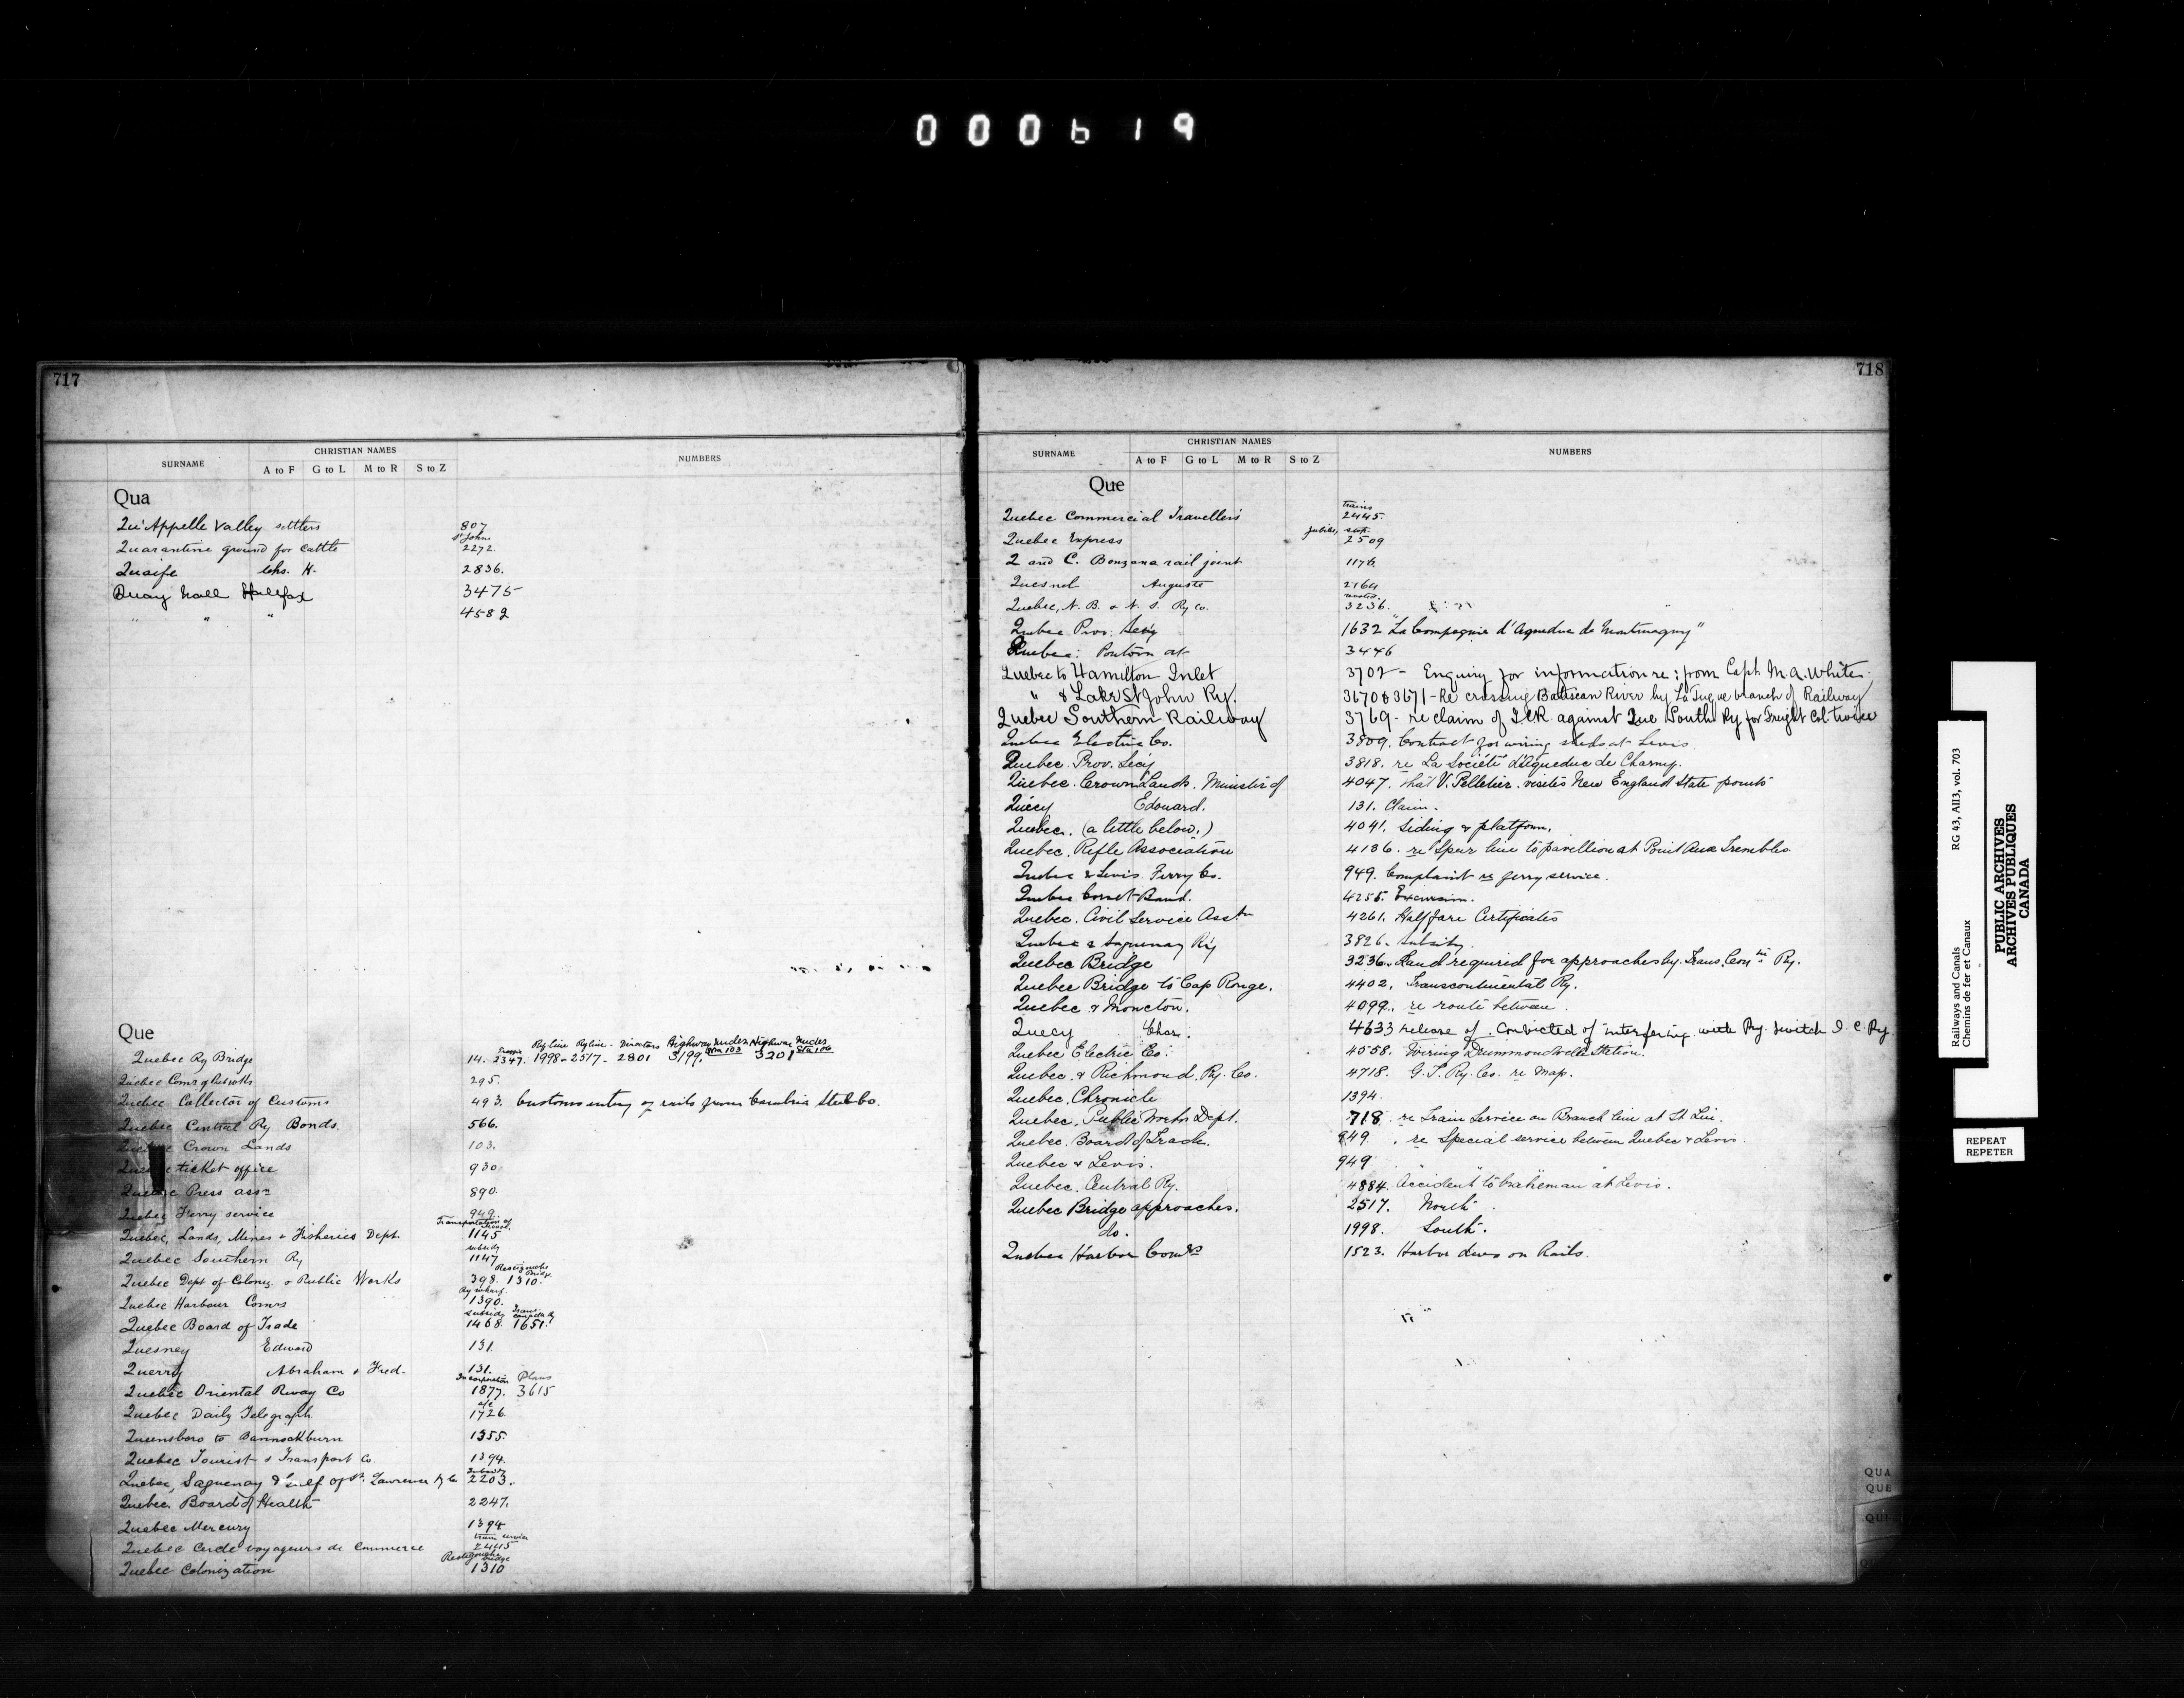 000619
717
SURNAME CHRISTIAN NAMES NUMBERS
A to F G to L M to R S to Z
Qua
Qu'Appelle Valley settlers 807
St Johns
Quarantine ground for cattle 2272
Quaife Chs. H. 2836.
Quay Wall Halifax 3475
" " " 4582
Que
Traffic Ry line Ry line Directors Highway under Stn 103 Highway under Sta 106
Quebec Ry Bridge 14. 2347. 1998-2517- 2801 3199, 3201
Quebec Comr of 295.
Quebec Collector of Customs 493. Customs entry of rails from Cambria Steel Co.
Quebec Central Ry Bonds. 566.
Crown Lands 103.
ticket office 930
Quebec Press assn 890.
Quebec Ferry service 949.
Transportation of
Quebec, Lands, Mines & Fisheries Dept. 1145
subsidy
Quebec Southern Ry 1147
Restigouche Bridge
Quebec Dept of Coloniz. & Public Works 398. 1310.
Ry wharf.
Quebec Harbour Comrs 1390.
subsidy Trans
Quebec Board of Trade 1468. 1651.
Quesney Edward 131.
Querry Abraham & Fred. 131.
Incorporation Plans
Quebec Oriental Rway Co 1877. 3615
a/c
Quebec Daily Telegraph 1726.
Queensboro to Bannockburn 1355.
Quebec Tourist & Transport Co. 1394.
Subsidy
Quebec, Saguenay & Gulf of St. Lawrence Ry Co 2203.
Quebec Board of Health 2247.
Quebec Mercury 1394
train service
Quebec Cercle voyageurs de Commerce 2445
Restigouche bridge
Quebec Colonization 1310
718
SURNAME CHRISTIAN NAMES NUMBERS
A to F G to L M to R S to Z
Que
trains
Quebec Commercial Travellers 2445.
Jubilee, stop
Quebec Express 2509
Q and C. Bonzana rail joint 1176
Quesnel Auguste 2164
Quebec, N. B. & N. S. Ry Co. 3236.
Quebec Prov. Sec'y 1632 "La Compagnie d'Aqueduc de Montmagny"
Quebec: Pontoon at 3446
Quebec to Hamilton Inlet 3702 - Enquiry for information re: from Capt. M.A. White
" & Lake St John Ry. 3670 & 3671 - Re crossing Batiscan River by La Tuque branch of Railway
Quebec Southern Railway 3769 - re claim of I.C.R. against Que South Ry for Freight Col. twice
Quebec Electric Co. 3809. Contract for wiring sheds at Levis
Quebec. Prov. Sec'y 3818. re La Société d'Aqueduc de Charny.
Quebec. Crown Lands. Minister of 4047. that V. Pelletier. visites New England State points
Quecy Edouard. 131. Claim.
Quebec. (a little below.) 4041. Siding & platform.
Quebec. Rifle Association 4136. re Spur line to pavellion at Point Aux Trembles.
Quebec & Levis Ferry Co. 949. Complaint re ferry service.
Quebec Cornet Band. 4255. Excursion.
Quebec. Civil Service Asstn 4261. Half fare Certificates
Quebec & Saguenay Ry 3826. subsidy.
Quebec Bridge 3236. Land required for approaches by. Trans. Con'tl Ry.
Quebec Bridge to Cap Rouge. 4402. Transcontinental Ry.
Quebec & Moncton. 4099. re route between.
Quecy Char. 4633 release of. Convicted of interfering with Ry. switch I. C. Ry
Quebec Electric Co. 4558. Wiring Drummondville Station.
Quebec. & Richmond. Ry. Co. 4718. G. T. Ry. Co. re Map.
Quebec. Chronicle 1394
Quebec. Public Works Dept. 718. re Train Service on Branch line at St Lin.
Quebec. Board of Trade. 949. re Special service between Quebec & Levis.
Quebec & Levis. 949
Quebec. Central Ry. 4884. Accident to brakeman at Levis.
Quebec Bridge approaches. 2517. North
do. 1998. South.
Quebec Harbor Comrs 1523. Harbor dues on Rails.
QUA
QUE
QUI
Railways and Canals RG 43, AII3, vol. 703
Chemins de fer et Canaux
PUBLIC ARCHIVES
ARCHIVES PUBLIQUES
CANADA
REPEAT
REPETER